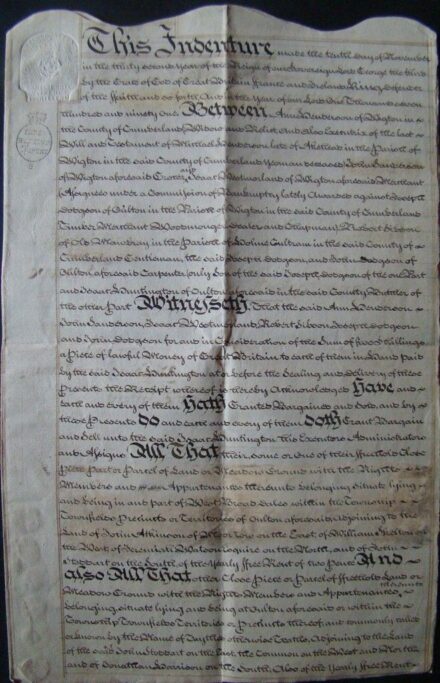 This Indenture made the tenth day of November
in the thirty second year of the Reign of our Sovereign Lord George the third
by the Grace of God of Great Britain France and Ireland King defender
of the ffaith and so forth And in the year of our Lord One Thousand seven
hundred and ninety one Between Ann Henderson of Wigton in
the County of Cumberland Widow and Relict and also Executrix of the last
Will and Testament of Michael Henderson late of in the Parish of
Wigton in the said County of Cumberland Yeoman deceased John Sanderson
of Wigton aforesaid Grocer and Isaac Westmorland of Wigton aforesaid Merchant
Assignees under a Commission of Bankruptcy lately Awarded against Joseph
Dodgson of Oulton in the Parish of Wigton in the said County of Cumberland
Timber Merchant Woodmonger Dealer and Chapman Robert
of Old Mawbray in the Parish of Holme Cultram in the said County of
Cumberland Gentleman, the said Joseph Dodgson, and John Dodgson of
Oulton aforesaid Carpenter only Son of the said Joseph Dodgson of the one Part
and Isaac Huntington of Oulton aforesaid in the said County of
the other Part Witnesseth That the said Ann Henderson
John Sanderson Isaac Westmorland Robert Joseph Dodgson
and John Dodgson for and in Consideration of the Sum of five Shillings
a Piece of lawful Money of Great Britain to each of them in Hand Paid
by the said Isaac Huntington at or before the Sealing and Delivery of these
Presents the Receipt whereof is hereby Acknowledged Have and
each and every of them Hath Granted Bargained and Sold and by
these Presents Do and each and every of them doth Grant Bargain
and Sell unto the said Isaac Huntington His Executors Administrators
and Assigns All That there, some or One of their ffreehold Close
Piece Part or Parcel of Land or Meadow Ground with the Rights
Members and Appurtenances thereunto belonging situate lying
and being in and part of West Broad dales within the Township
Townfields Precincts or Territories of Oulton aforesaid adjoining to the
Land of John Atkinson of Moor Row on the East, of William
on the West, of Jeremiah Esquire on the North, and of John
Stoddart on the South of the Yearly ffree Rent of two Pence And
also All That other Close Piece or Parcel of ffreehold Land or
Meadow Ground with the Rights Members and Appurtenances thereunto
belonging situate lying and being at Oulton aforesaid or within the
Township Townfields Territories or Precincts thereof and commonly called
or known by the Name of otherwise adjoining to the Land
of the said John Stoddart on the East, the Common on the West and North
and of Jonathan Harrison on the South, Also of the Yearly ffree Rent